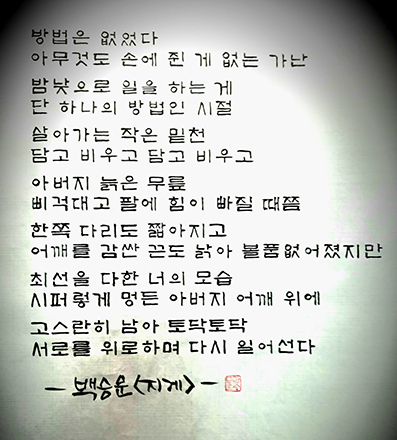 방법은 없었다
아무것도 손에 쥔 게 없는 가난
밤낮으로 일을 하는 게
단 하나의 방법인 시절
살아가는 작은 밑천
담고 비우고 담고 비우고
아버지 늙은 무릎
삐걱대고 팔에 힘이 빠질 때쯤
한쪽 다리도 짧아지고
어깨를 감싼 끈도 낡아 볼품없어졌지만
최선을 다한 너의 모습
시퍼렇게 멍든 아버지 어깨 위에
고스란히 남아 토닥토닥
서로를 위로하며 다시 일어선다
- 백승운 <지게> -